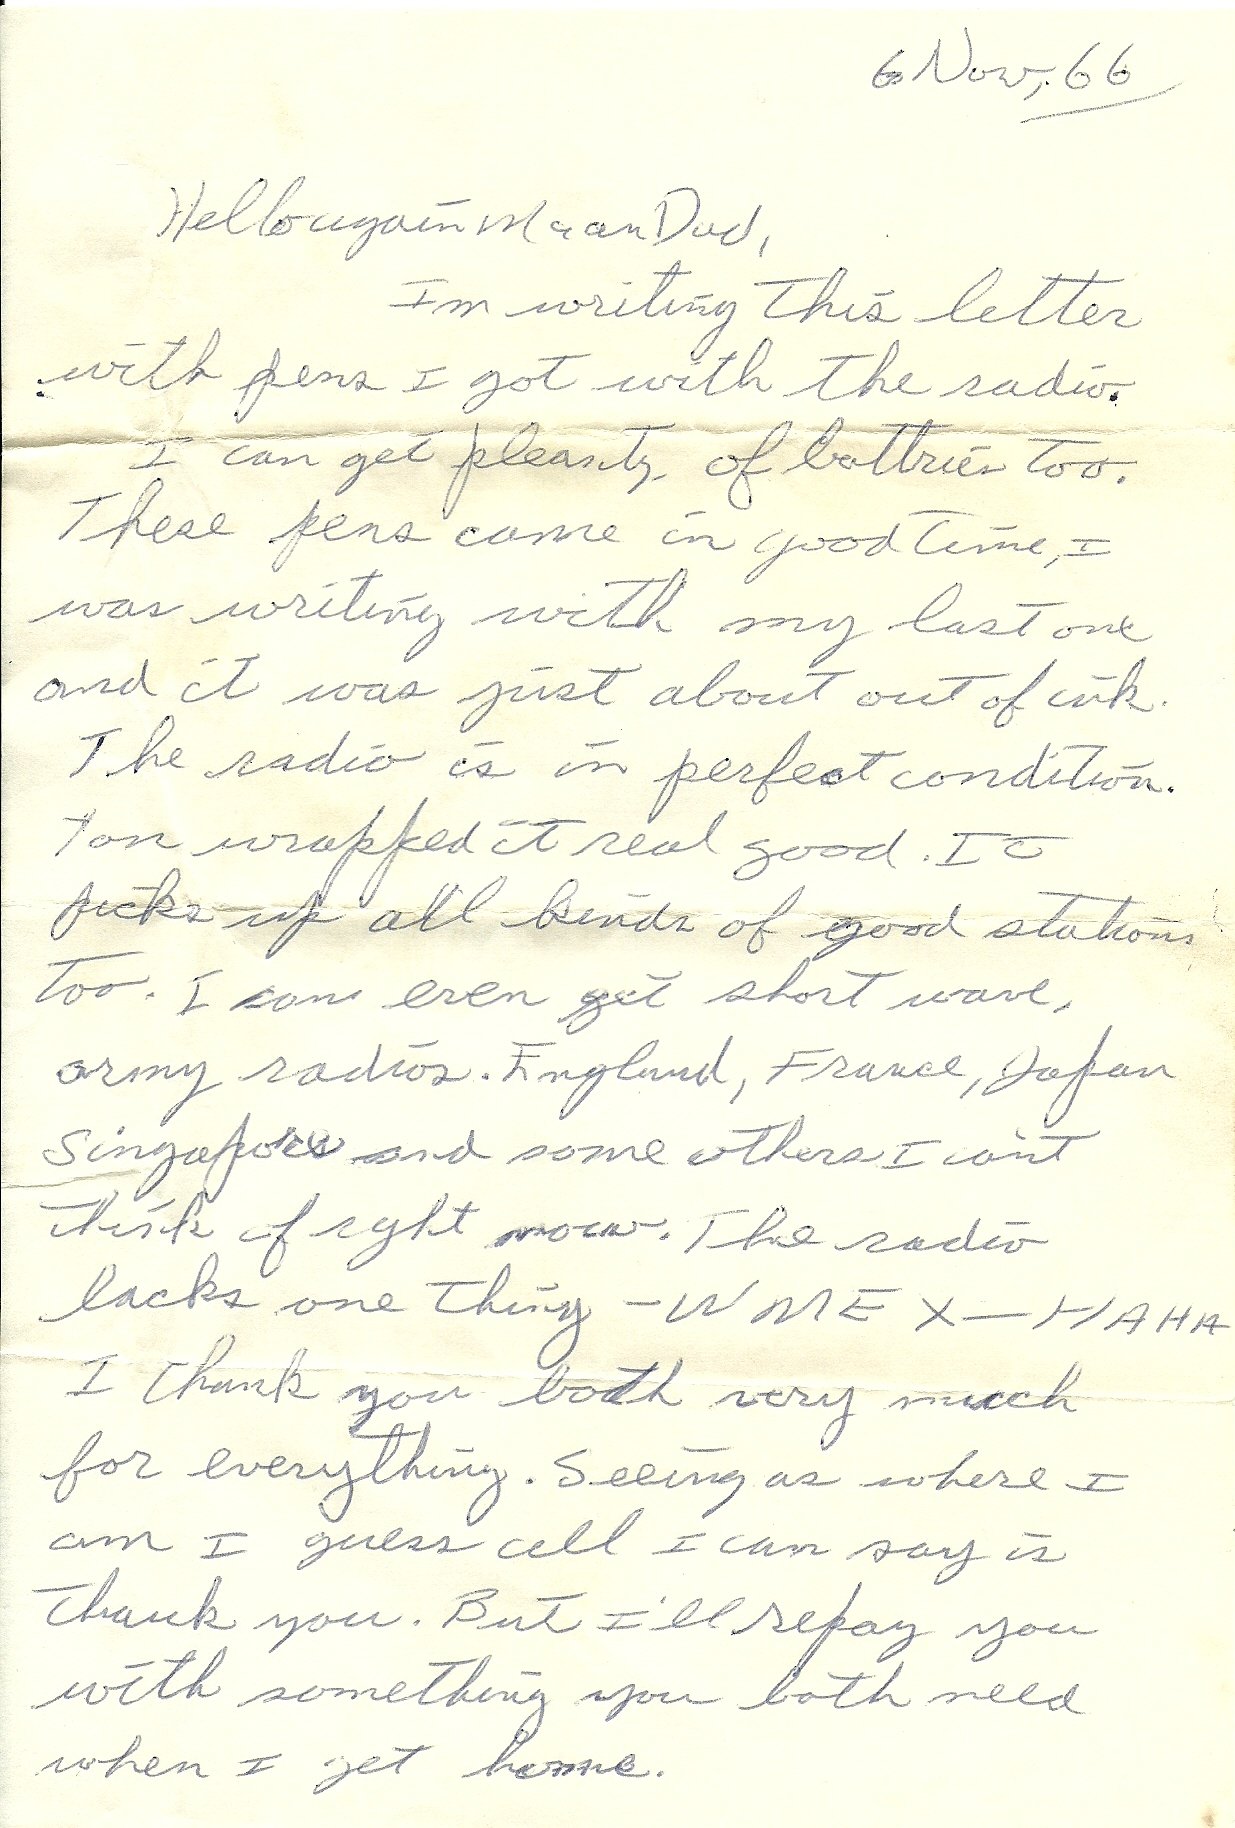 6 Nov, 66
Hello again Ma an Dad,
Im writing this letter
with pens I got with the radio.
I can get pleanty of battries too.
These pens came in good time, I
was writing with my last one
and it was just about out of ink.
The radio is in perfect condition.
You wrapped it real good. It
picks up all kinds of good stations
too. I can even get short wave,
army radios. England, France, Japan
Singapore and some others I cant
think of right now. The radio
lacks one thing - WMEX - HAHA
I thank you both very much
for everything. Seeing as where I
am I guess all I can say is
thank you. But I'll repay you
with something you both need
when I get home.